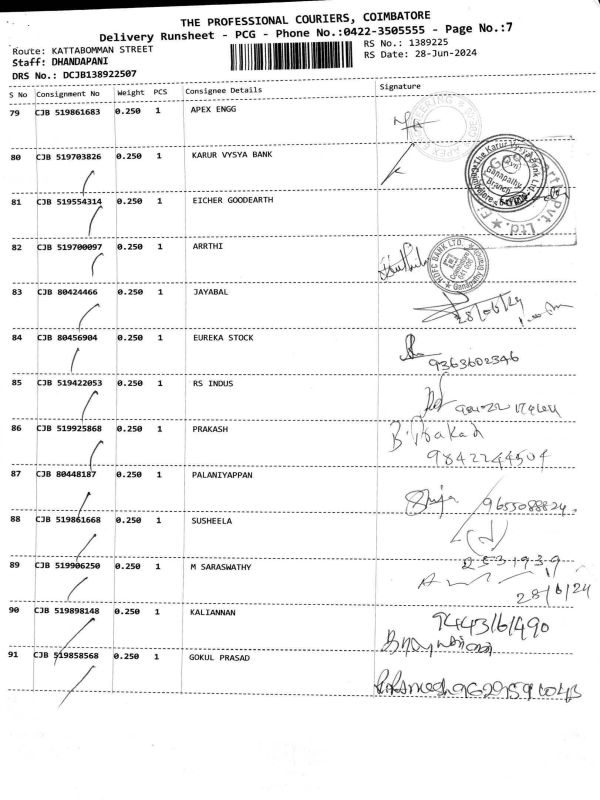 THE PROFESSIONAL COURIERS, COIMBATORE
Delivery Runsheet - PCG - Phone No.:0422-3505555 - Page No.:7
Route: KATTABOMMAN STREET
RS No.: 1389225
Staff: DHANDAPANI
RS Date: 28-Jun-2024
DRS No.: DCJB138922507
S No Consignment No Weight PCS Consignee Details Signature
79 CJB 519861683 0.250 1 APEX ENGG
80 CJB 519703826 0.250 1 KARUR VYSYA BANK
81 CJB 519554314 0.250 1 EICHER GOODEARTH
82 CJB 519700097 0.250 1 ARRTHI
83 CJB 80424466 0.250 1 JAYABAL
28/06/24
84 CJB 80456904 0.250 1 EUREKA STOCK
9363602346
85 CJB 519422053 0.250 1 RS INDUS
86 CJB 519925868 0.250 1 PRAKASH
B. Prakash
9842244504
87 CJB 80448187 0.250 1 PALANIYAPPAN
9655088824
88 CJB 519861668 0.250 1 SUSHEELA
2531939
89 CJB 519906250 0.250 1 M SARASWATHY
28/6/24
90 CJB 519898148 0.250 1 KALIANNAN
9443161490
91 CJB 519858568 0.250 1 GOKUL PRASAD